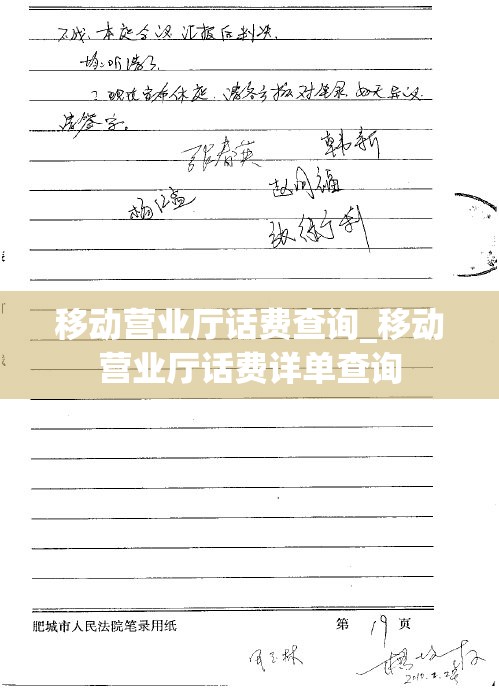 不成,本庭合议汇报后判决。
均:听清了。
?:现在宣布休庭,请各方核对笔录,如无异议
请签字。
张春英
韩新
赵同福
移动营业厅话费查询_移动
营业厅话费详单查询
肥城市人民法院笔录用纸
第 19 页